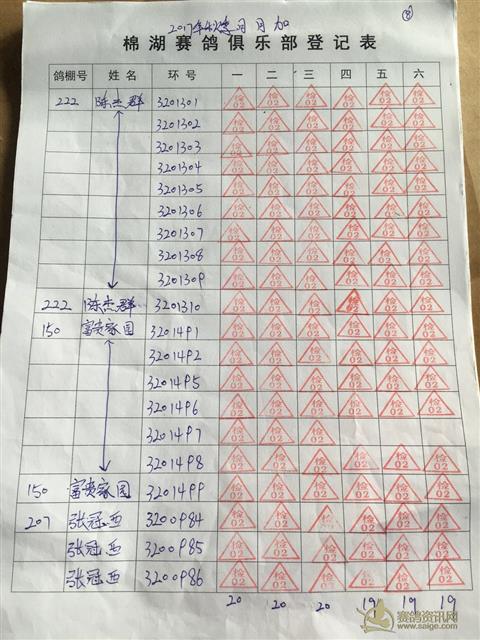 ⑧
2017年 月 加
棉湖赛鸽俱乐部登记表
鸽棚号 姓名 环号 一 二 三 四 五 六
222 陈杰群 3201301 检02 检02 检02 检02 检02 检02
3201302 检02 检02 检02 检02 检02 检02
3201303 检02 检02 检02 检02 检02 检02
3201304 检02 检02 检02 检02 检02 检02
3201305 检02 检02 检02 检02 检02 检02
3201306 检02 检02 检02 检02 检02 检02
3201307 检02 检02 检02 检02 检02 检02
3201308 检02 检02 检02 检02 检02 检02
3201309 检02 检02 检02 检02 检02 检02
222 陈杰群 3201310 检02 检02 检02 检02 检02 检02
150 富贵家园 3201491 检02 检02 检02 检02 检02 检02
3201492 检02 检02 检02 检02 检02 检02
3201495 检02 检02 检02 检02 检02 检02
3201496 检02 检02 检02 检02 检02 检02
3201497 检02 检02 检02
3201498 检02 检02 检02 检02 检02 检02
150 富贵家园 3201499 检02 检02 检02 检02 检02 检02
207 张冠西 3200984 检02 检02 检02 检02 检02 检02
张冠西 3200985 检02 检02 检02 检02 检02 检02
张冠西 3200986 检02 检02 检02 检02 检02 检02
20 20 20 19 19 19
赛鸽资讯网
www.saige.com